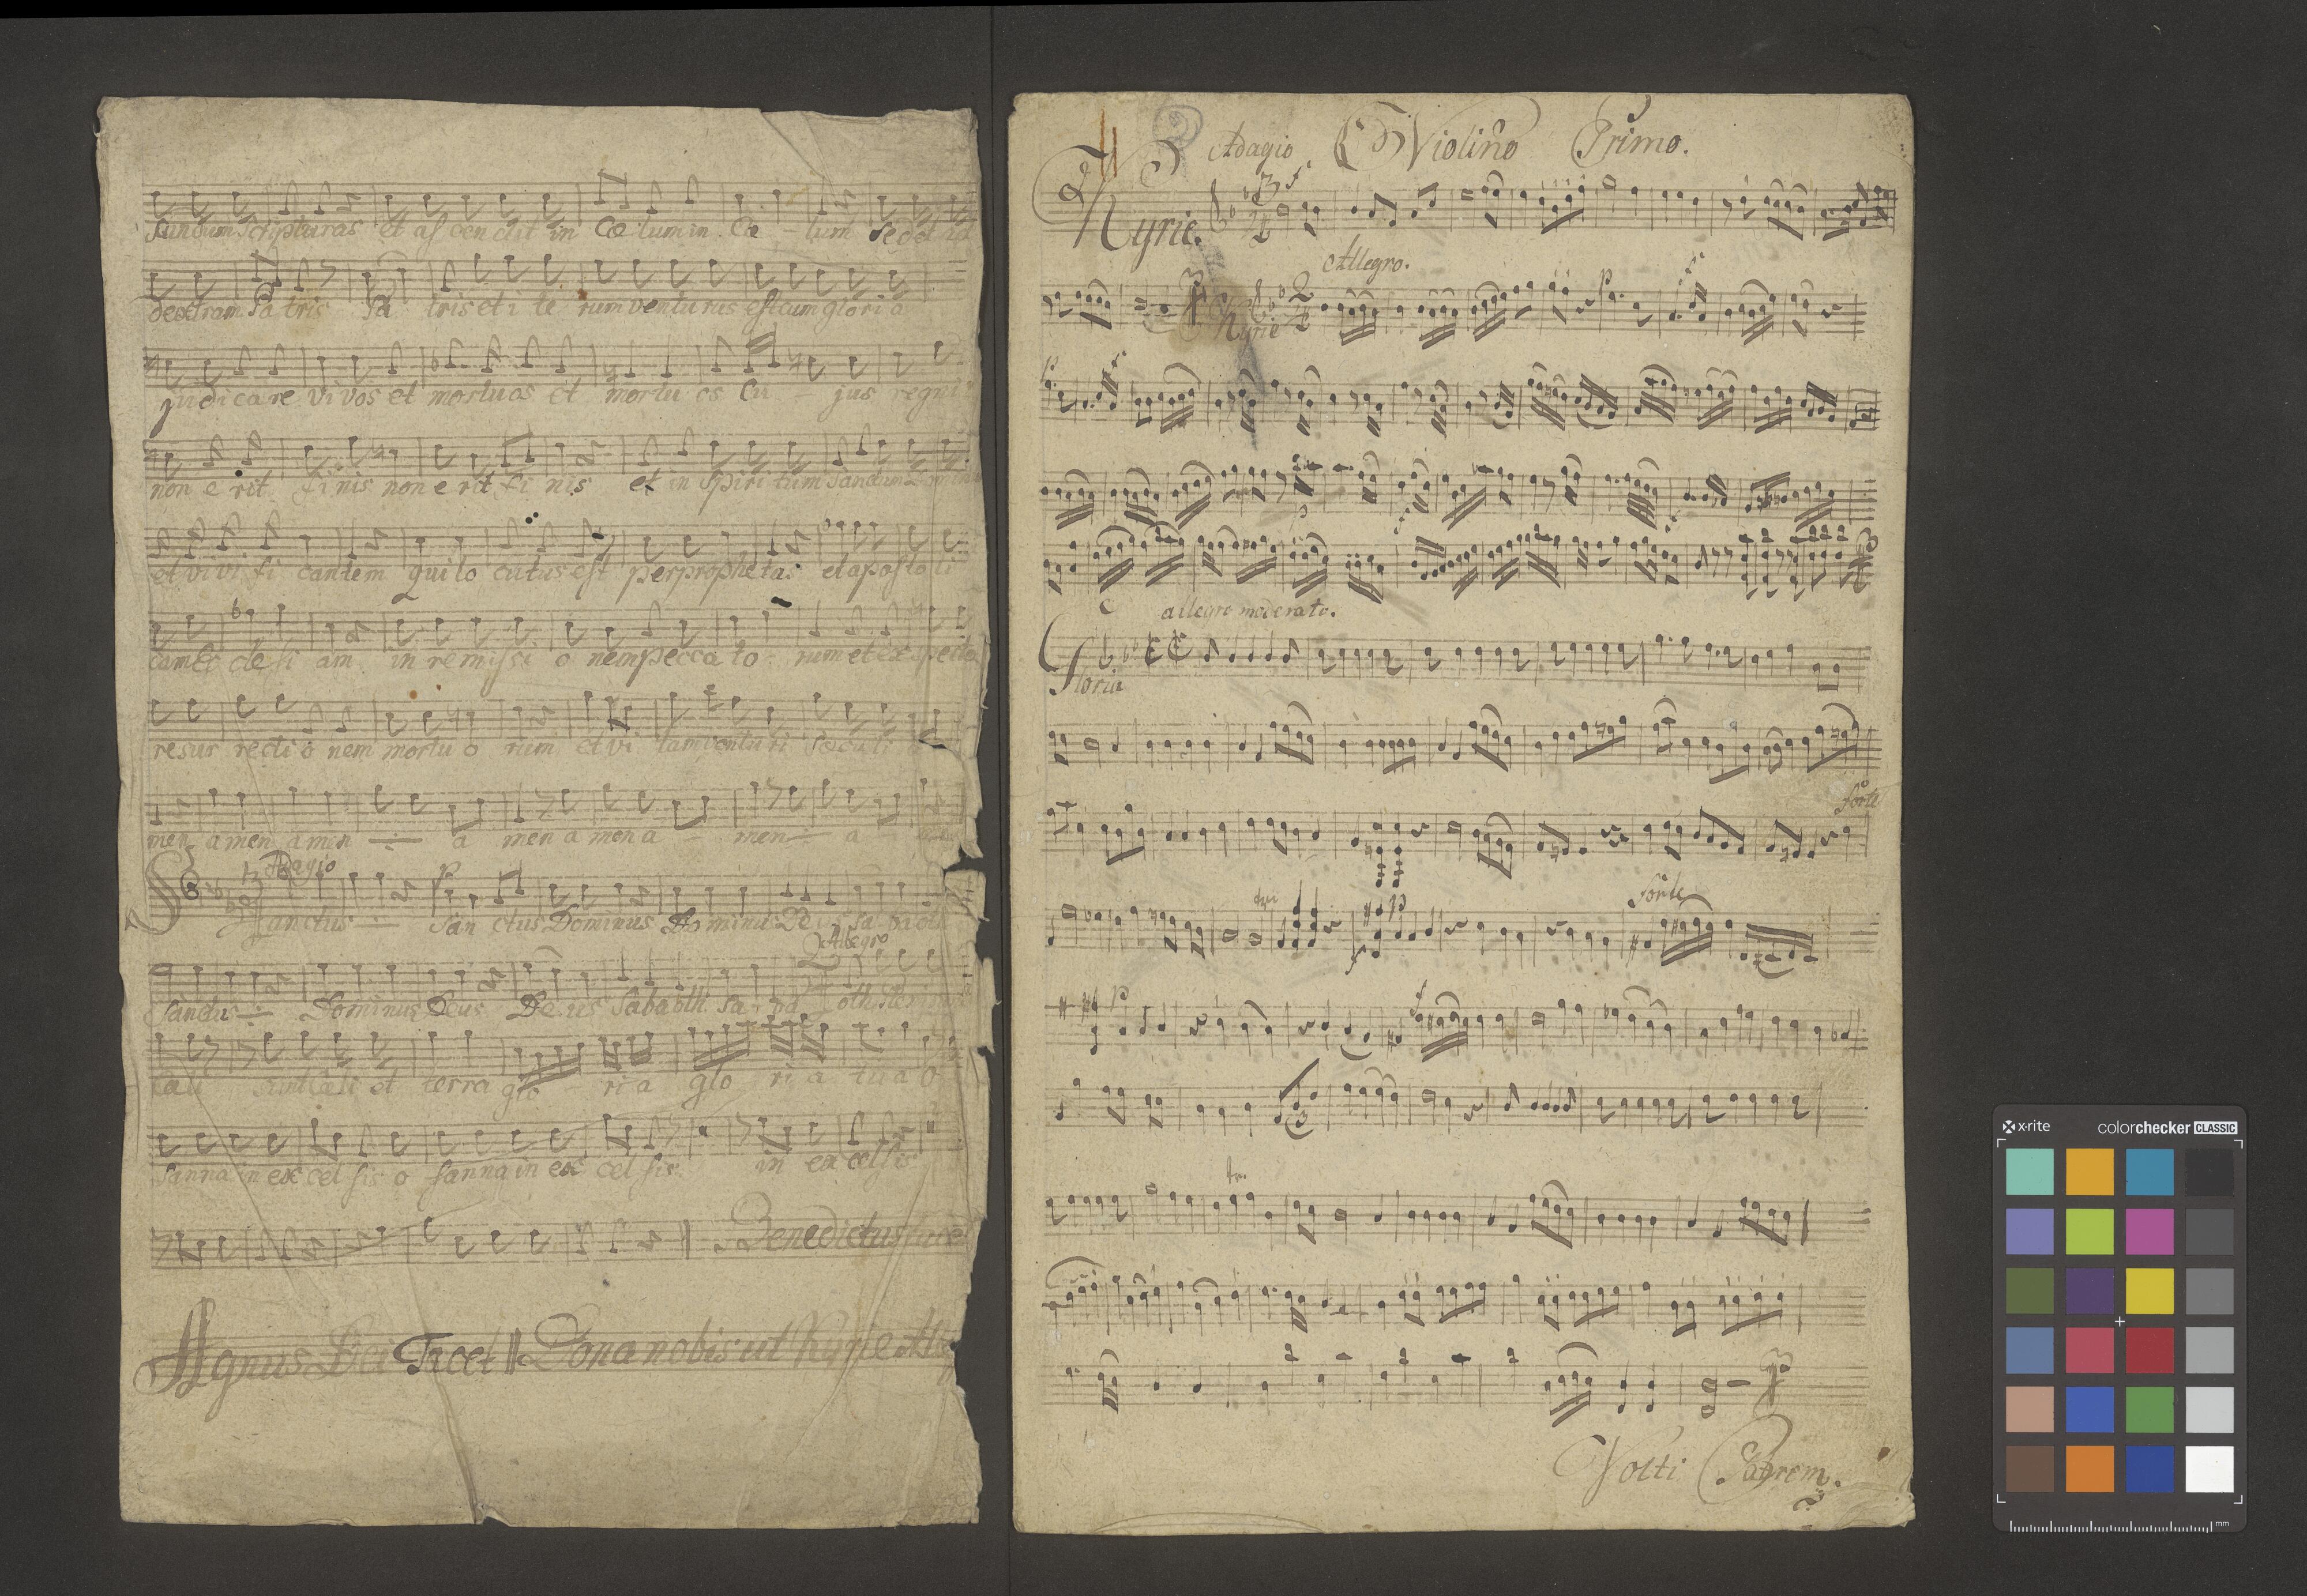 Sundum Scripturas et ascendit in Cœ lum in Cœ - lum sedet ad
dextram Pa tris Pa tris et i te rum venturus est cum gloria
judicare vivos et mortuos et mortu os Cu - jus regni
non e rit finis non e rit fi nis et in Spiri tum Sanctum Domin
et vi vi fi cantem qui lo cutus est per prophetas et aposto li
cam Ec cle si am in remissi o nem pecca to - rum et ex specto
resur recti o nem mortu o rum et vi tam venturi sæculi
men amen amen ÷ a men a men a men ÷ a
Adagio
p
Sanctus ÷ San ctus Dominus Do minus De us Sa ba oth
Allegro
Sanctus ÷ Dominus Deus De us Sabaoth Sa - ba oth Pleni
cæli sunt cæli et terra glo ri a glo ri a tu a O
sanna in ex cel sis o sanna in ex cel sis in ex celsis
Benedictus tacet
Agnus Dei Tacet || Dona nobis ut Kyrie All
Adagio Violino Primo.
Kyrie.
Allegro.
Kyrie
allegro moderato.
Gloria
forte
forte
Volti Patrem.
x-rite colorchecker CLASSIC
mm